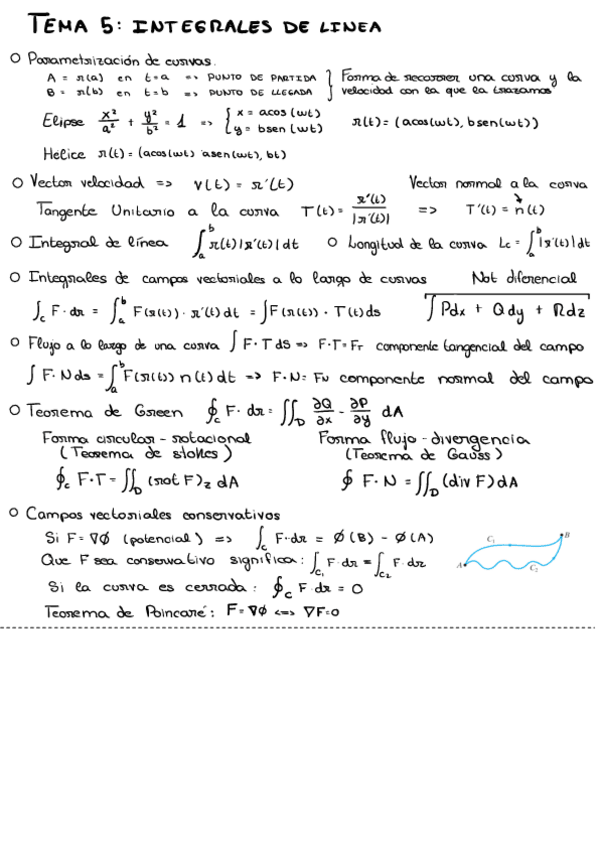 TEMA 5: INTEGRALES DE LINEA
○ Parametrización de curvas.
A = r(a) en t=a => PUNTO DE PARTIDA } Forma de recorrer una curva y la
B = r(b) en t=b => PUNTO DE LLEGADA } velocidad con la que la trazamos
Elipse x²/a² + y²/b² = 1 => { x = acos(wt) y = bsen(wt) r(t) = (acos(wt), bsen(wt))
Helice r(t) = (acos(wt) asen(wt), bt)
○ Vector velocidad => v(t) = r'(t) Vector normal a la curva
Tangente Unitario a la curva T(t) = r'(t)/|r'(t)| => T'(t) = n(t)
○ Integral de línea ∫ₐᵇ r(t)|r'(t)|dt ○ Longitud de la curva Lc = ∫ₐᵇ |r'(t)|dt
○ Integrales de campos vectoriales a lo largo de curvas Not diferencial
∫c F·dr = ∫ₐᵇ F(r(t))·r'(t)dt = ∫F(r(t))·T(t)ds ∫Pdx + Qdy + Rdz
○ Flujo a lo largo de una curva ∫F·T dS => F·T = FT componente tangencial del campo
∫F·N ds = ∫ₐᵇ F(r(t)) n(t)dt => F·N = FN componente normal del campo
○ Teorema de Green ∮c F·dr = ∬D ∂Q/∂x - ∂P/∂y dA
Forma circular - rotacional Forma flujo - divergencia
(Teorema de stokes) (Teorema de Gauss)
∮c F·T = ∬D (rot F)z dA ∮ F·N = ∬D (div F)dA
○ Campos vectoriales conservativos
Si F = ∇Ø (potencial) => ∫c F·dr = Ø(B) - Ø(A)
Que F sea conservativo significa: ∫c1 F·dr = ∫c2 F·dr
A C1 C2 B
Si la curva es cerrada: ∮c F·dr = 0
Teorema de Poincaré: F = ∇Ø <=> ∇F=0